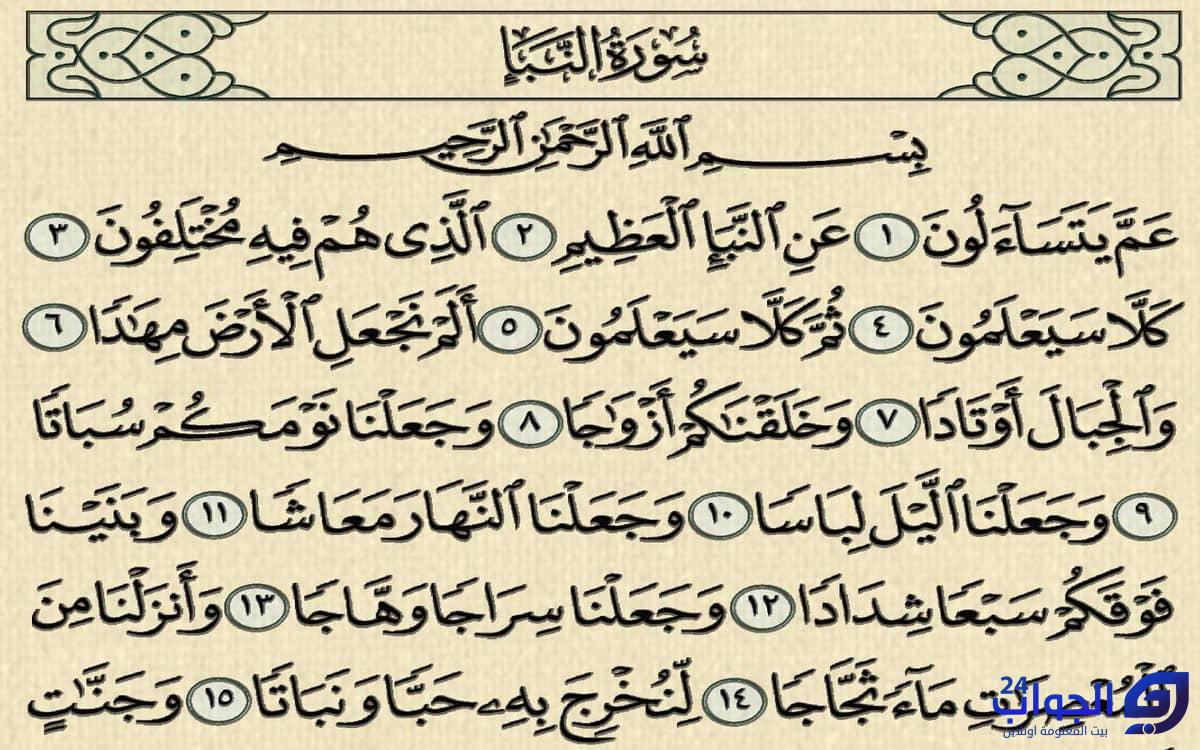 سُورَةُ النَّبَإِ
بِسْمِ ٱللَّهِ ٱلرَّحْمَٰنِ ٱلرَّحِيمِ
عَمَّ يَتَسَآءَلُونَ ١ عَنِ ٱلنَّبَإِ ٱلْعَظِيمِ ٢ ٱلَّذِى هُمْ فِيهِ مُخْتَلِفُونَ ٣
كَلَّا سَيَعْلَمُونَ ٤ ثُمَّ كَلَّا سَيَعْلَمُونَ ٥ أَلَمْ نَجْعَلِ ٱلْأَرْضَ مِهَٰدًا ٦
وَٱلْجِبَالَ أَوْتَادًا ٧ وَخَلَقْنَٰكُمْ أَزْوَٰجًا ٨ وَجَعَلْنَا نَوْمَكُمْ سُبَاتًا
٩ وَجَعَلْنَا ٱلَّيْلَ لِبَاسًا ١٠ وَجَعَلْنَا ٱلنَّهَارَ مَعَاشًا ١١ وَبَنَيْنَا
فَوْقَكُمْ سَبْعًا شِدَادًا ١٢ وَجَعَلْنَا سِرَاجًا وَهَّاجًا ١٣ وَأَنزَلْنَا مِنَ
ٱلْمُعْصِرَٰتِ مَآءً ثَجَّاجًا ١٤ لِّنُخْرِجَ بِهِۦ حَبًّا وَنَبَاتًا ١٥ وَجَنَّٰتٍ
الجواب 24
بيت المعلومة اونلاين